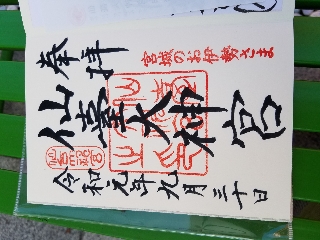 奉拝
宮城のお伊勢さま
仙臺大神宮
令和元年九月三十日